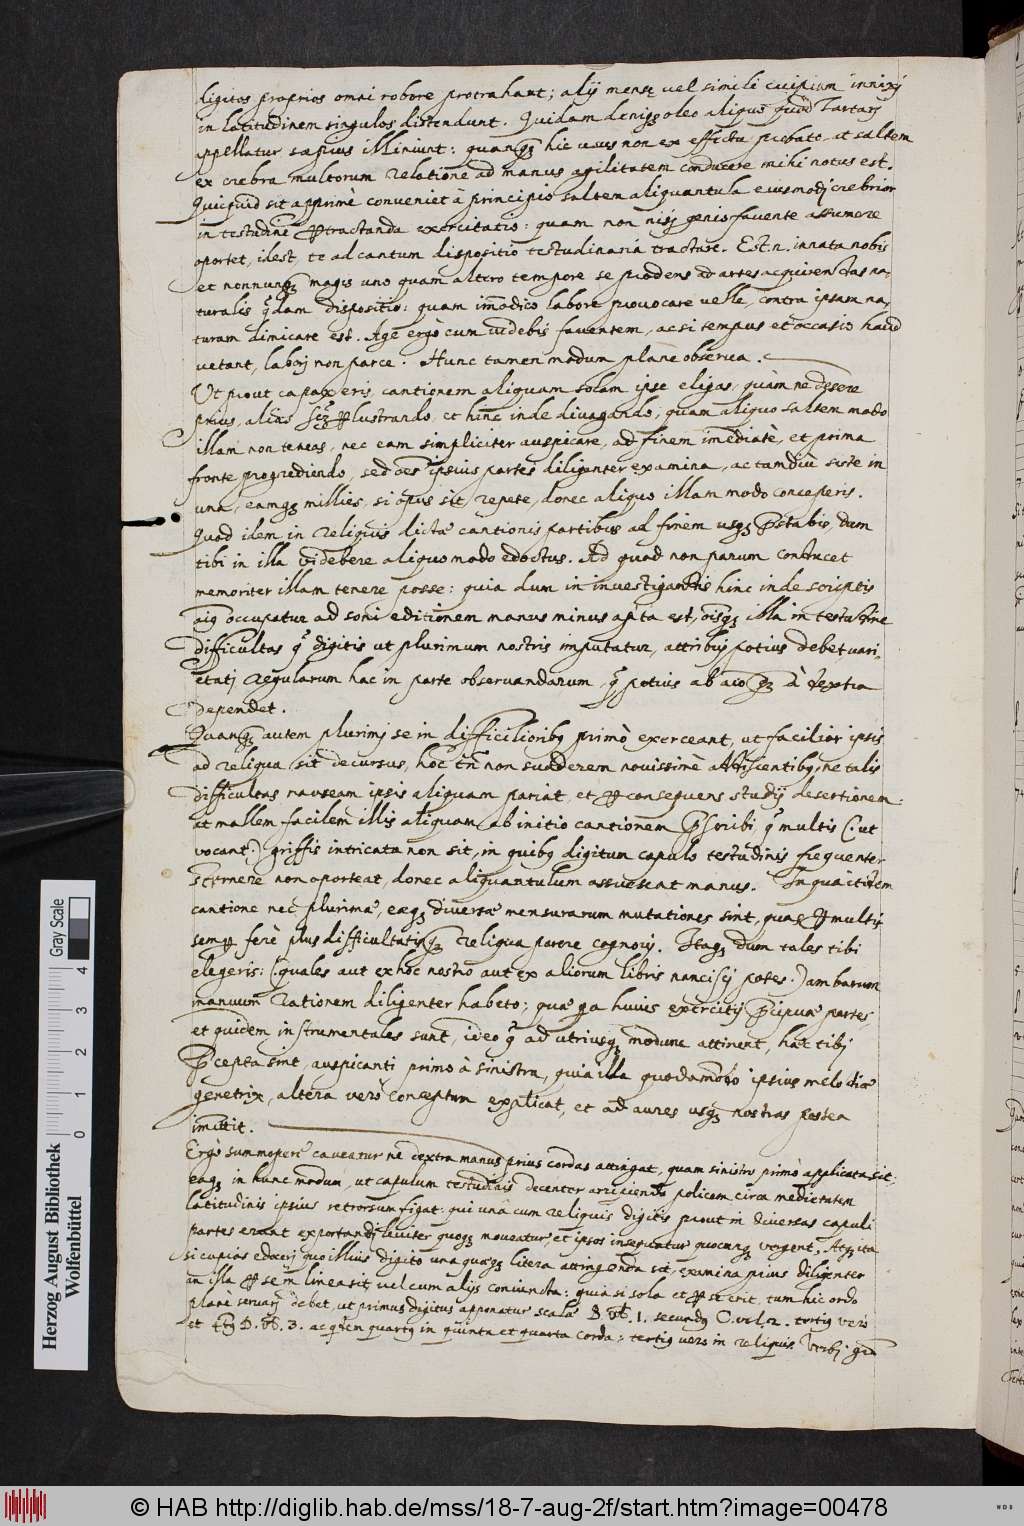 digitos proprios omni robore protrahant; alij mensę vel simili cuipiam innixi
in latitudinem singulos distendunt. Quidam deniqȝ oleo aliquo quod Tartarj
appellatur sæpius illiniunt: quanqȝ hic usus non ex effectu probato at saltem
ex crebra multorum relatione ad manus agilitatem conducere mihi notus est.
Quicquid sit apprimè conveniet à principio saltem aliquantula eiusmodj crebrior
in testudine ptractanda exercitatio: quam non nisj genio favente assumere
oportet, id est, te ad cantum dispositio testudinariā tractare. Est.n. innata nobis
et nonnunqȝ magis uno quam altero tempore se prodens ad artes acquirendas na,
turalis qdam dispositio: quam im̄odico labore provocare velle, contra ipsam na,
turam dimicare est. Age ergo cum videbis faventem, ac si tempus et occasio haud
vetant, laborj non parce. Hunc tamen modum planè observa.
Ut prout capax eris, cantionem aliquam solam ipse eligas, quàm ne desere
prius, alias plustrando, et hinc inde divagando, quam aliquo saltem modo
illam non teneas, nec eam simpliciter auspicare, ad finem imediatè, et prima
fronte progrediendo, sed oēs ipsius partes diligenter examina, ac tamdiu siste in
una, eamqȝ millies, si opus sit, repete, donec aliquo illam modo conceperis.
Quod idem in reliquis dictæ cantionis partibus ad finem usqȝ pstabis, dum
tibi in illa videbere aliquo modo edoctus. Ad quod non parum conducet
memoriter illam tenere posse: quia dum in investigandis hinc inde scriptis
aiq occupatur ad soni editionem manus minus apta est, oīsqȝ illa in testudine
difficultas q digitis ut plurimum nostris imputatur, attribuj potius debet, vari,
etatj regularum hac in parte observandarum, q potius ab aio qȝ à dextra
dependet.
Quanqȝ autem plurimj se in difficilioribq primò exerceant, ut facilior ipsis
ad reliqua sit decursus, hoc tn non suaderem novissimè addiscentibq, ne talis
difficultas nauseam ipsis aliquam pariat, et p consequens studij desertionem:
at mallem facilem illis aliquam ab initio cantionem pscribi, q multis (: ut
vocant:) griffis intricata non sit, in quibq digitum capulo testudinis frequenter
sternere non oporteat, donec aliquantulum assuescat manus. In qua item
cantione nec plurimæ, eæqȝ diversæ mensurarum mutationes sint, quæ p multis
semp ferè plus difficultatis qȝ reliqua parere cognovis. Itaqȝ dum tales tibi
elegeris: (: quales aut ex hoc nostro aut ex aliorum libris nancisci potes:) ambarum
manuum rationem diligenter habeto; quæ qa huius exercitij pcipuæ partes,
et quidem instrumentales sunt, ideo q ad utriusqȝ modum attinent, hæc tibj
pcepta sint, auspicanti primo à sinistra, quia illa quodammodo ipsius melodiæ
genetrix, altera verò conceptum explicat, et ad aures usqȝ nostras postea
imittit.
Ergo summopere caveatur ne dextra manus prius cordas attingat, quam sinistra primò applicata sit,
eaqȝ in hunc modum, ut capulum testudinis decenter arripiendo policem circa medietatem
latitudinis ipsius retrorsum figat: qui unà cum reliquis digitis prout in diversas capuli
partes erunt exportandj leviter quoqȝ moveatur, et ipsos insequatur quocunqȝ vergent. Atqȝ ita
si cupias edocerj quo illius digito una quæqȝ litera attingenda sit, examina prius diligenter
an illa p se in linea sit, vel cum alijs coniuncta: quia si sola et p se erit, tum hic ordo
planè servarj debet, ut primus digitus apponatur scalæ B. vel. 1. secundq C. vel. 2. tertiq verò
et D. vel. 3. ac quartq in quinta et quarta corda: tertiq verò in reliquis. Verbj gra

Herzog August Bibliothek
Wolfenbüttel
0 1 2 3 4
Gray Scale
© HAB http://diglib.hab.de/mss/18-7-aug-2f/start.htm?image=00478